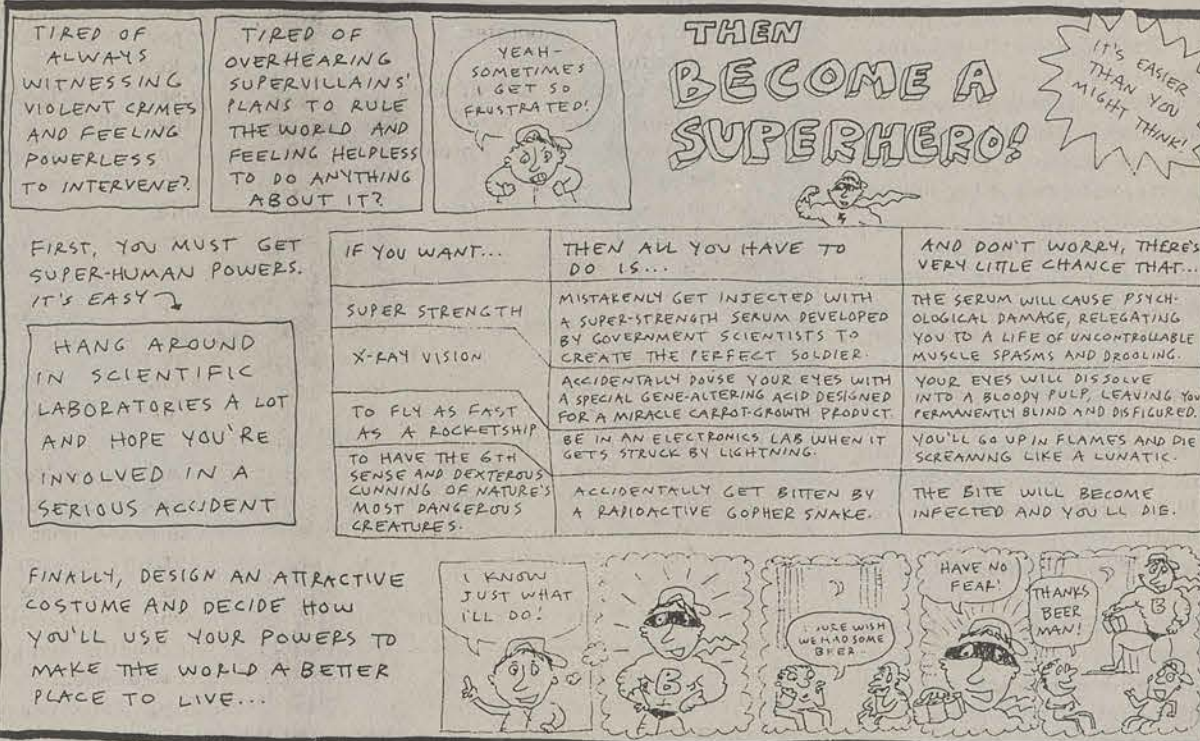 TIRED OF
ALWAYS
WITNESSING
VIOLENT CRIMES
AND FEELING
POWERLESS
TO INTERVENE?
TIRED OF
OVERHEARING
SUPERVILLAINS'
PLANS TO RULE
THE WORLD AND
FEELING HELPLESS
TO DO ANYTHING
ABOUT IT?
YEAH-
SOMETIMES
I GET SO
FRUSTRATED!
THEN
BECOME A
SUPERHERO!
IT'S EASIER
THAN YOU
MIGHT THINK!
FIRST, YOU MUST GET
SUPER-HUMAN POWERS.
IT'S EASY
HANG AROUND
IN SCIENTIFIC
LABORATORIES A LOT
AND HOPE YOU'RE
INVOLVED IN A
SERIOUS ACCIDENT
IF YOU WANT...
THEN ALL YOU HAVE TO
DO IS...
AND DON'T WORRY, THERE'S
VERY LITTLE CHANCE THAT...
SUPER STRENGTH
MISTAKENLY GET INJECTED WITH
A SUPER-STRENGTH SERUM DEVELOPED
BY GOVERNMENT SCIENTISTS TO
CREATE THE PERFECT SOLDIER.
THE SERUM WILL CAUSE PSYCH-
OLOGICAL DAMAGE, RELEGATING
YOU TO A LIFE OF UNCONTROLLABLE
MUSCLE SPASMS AND DROOLING.
X-RAY VISION
ACCIDENTALLY DOUSE YOUR EYES WITH
A SPECIAL GENE-ALTERING ACID DESIGNED
FOR A MIRACLE CARROT-GROWTH PRODUCT.
YOUR EYES WILL DISSOLVE
INTO A BLOODY PULP, LEAVING YOU
PERMANENTLY BLIND AND DISFIGURED.
TO FLY AS FAST
AS A ROCKETSHIP
BE IN AN ELECTRONICS LAB WHEN IT
GETS STRUCK BY LIGHTNING.
YOU'LL GO UP IN FLAMES AND DIE
SCREAMNG LIKE A LUNATIC.
TO HAVE THE 6TH
SENSE AND DEXTEROUS
CUNNING OF NATURE'S
MOST DANGEROUS
CREATURES.
ACCIDENTALLY GET BITTEN BY
A RADIOACTIVE GOPHER SNAKE.
THE BITE WILL BECOME
INFECTED AND YOU LL DIE.
FINALLY, DESIGN AN ATTRACTIVE
COSTUME AND DECIDE HOW
YOU'LL USE YOUR POWERS TO
MAKE THE WORLD A BETTER
PLACE TO LIVE...
I KNOW
JUST WHAT
I'LL DO!
B
I SURE WISH
WE HAD SOME
BEER.
HAVE NO
FEAR!
THANKS
BEER
MAN!
B